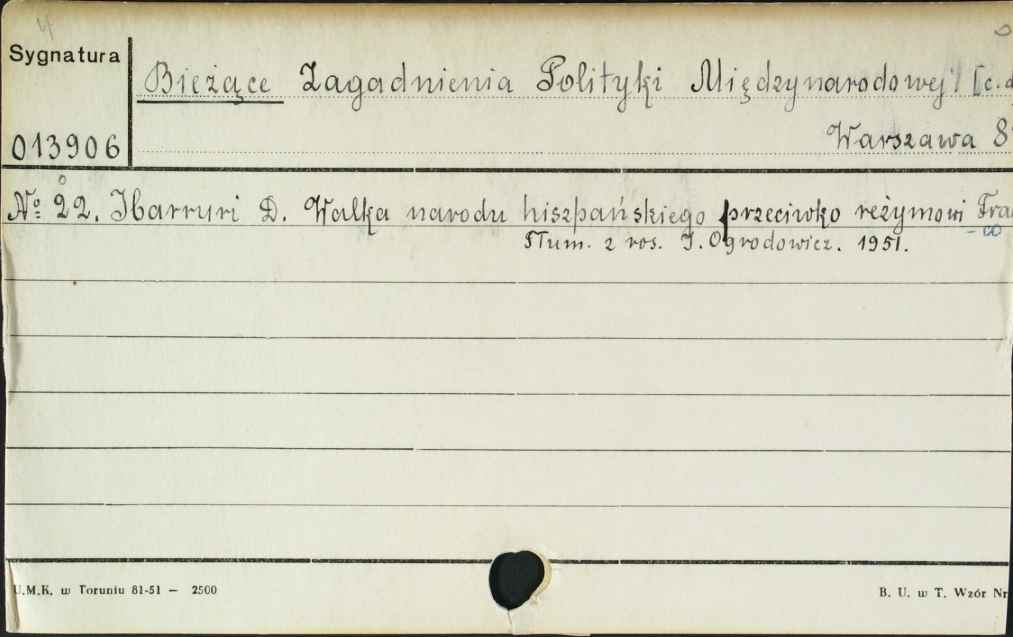 Sygnatura
Bieżące Zagadnienia Polityki Międzynarodowej [c.d
013906
Warszawa 8
№ 22. Ibarruri D. Walka narodu hiszpańskiego przeciwko reżymowi Fra
-co
Tłum. z ros. J. Ogrodowicz. 1951.
U.M.K. w Toruniu 81-51 — 2500
B. U. w T. Wzór Nr